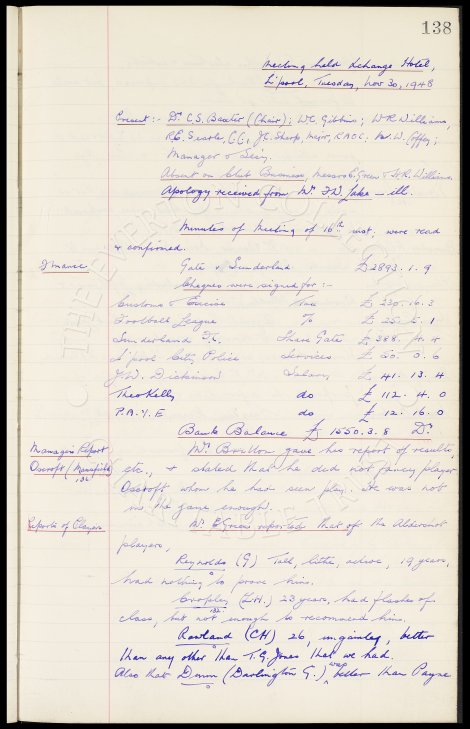 138
Meeting held Xchange Hotel,
L'pool, Tuesday, Nov 30, 1948
Present :- Dr C.S. Baxter (Chair); W.C. Gibbins; W.R. Williams,
R.E. Searle, J.C. Sharp, Major, R.A.O.C.; W.
Manager & Secy.
Absent on Club Business, Messrs E. Green & R. Williams
Apology received from Mr. F.W. Lake - ill.
Minutes of Meeting of 16th inst. were read
& confirmed.
Finance Gate v Sunderland £2893.1.9
Cheques were signed for :-
Customs & Excise Tax £ 230.16.3
Football League % £
Sunderland F.C. Share Gate £ 388.
L'pool City Police Services £ 0.6
Dickinson Salary £ 41.13.4
Theo Kelly do £ 112.4.0
P.A.Y.E do £ 12.16.0
Bank Balance £ 1550.3.8 Dr.
Managers Report Mr. Britton gave his report of results,
Oscroft (Mansfield) etc., & stated that he did not fancy player
Oscroft whom he had seen play. He was not
in the game enough.
Reports of Players Mr. E Green reported that of the Aldershot
players,
Reynolds (G) Tall, lithe, active, 19 years,
had nothing to prove him.
(L.H.) 23 years, had flashes of
class, but not enough to recommend him.
132
Rowland (CH) 26, ungainly, better
than any other than T.G. Jones that we had.
Also that Dunn (Darlington G.) was better than Payne
THE EVERTON COLLECTION